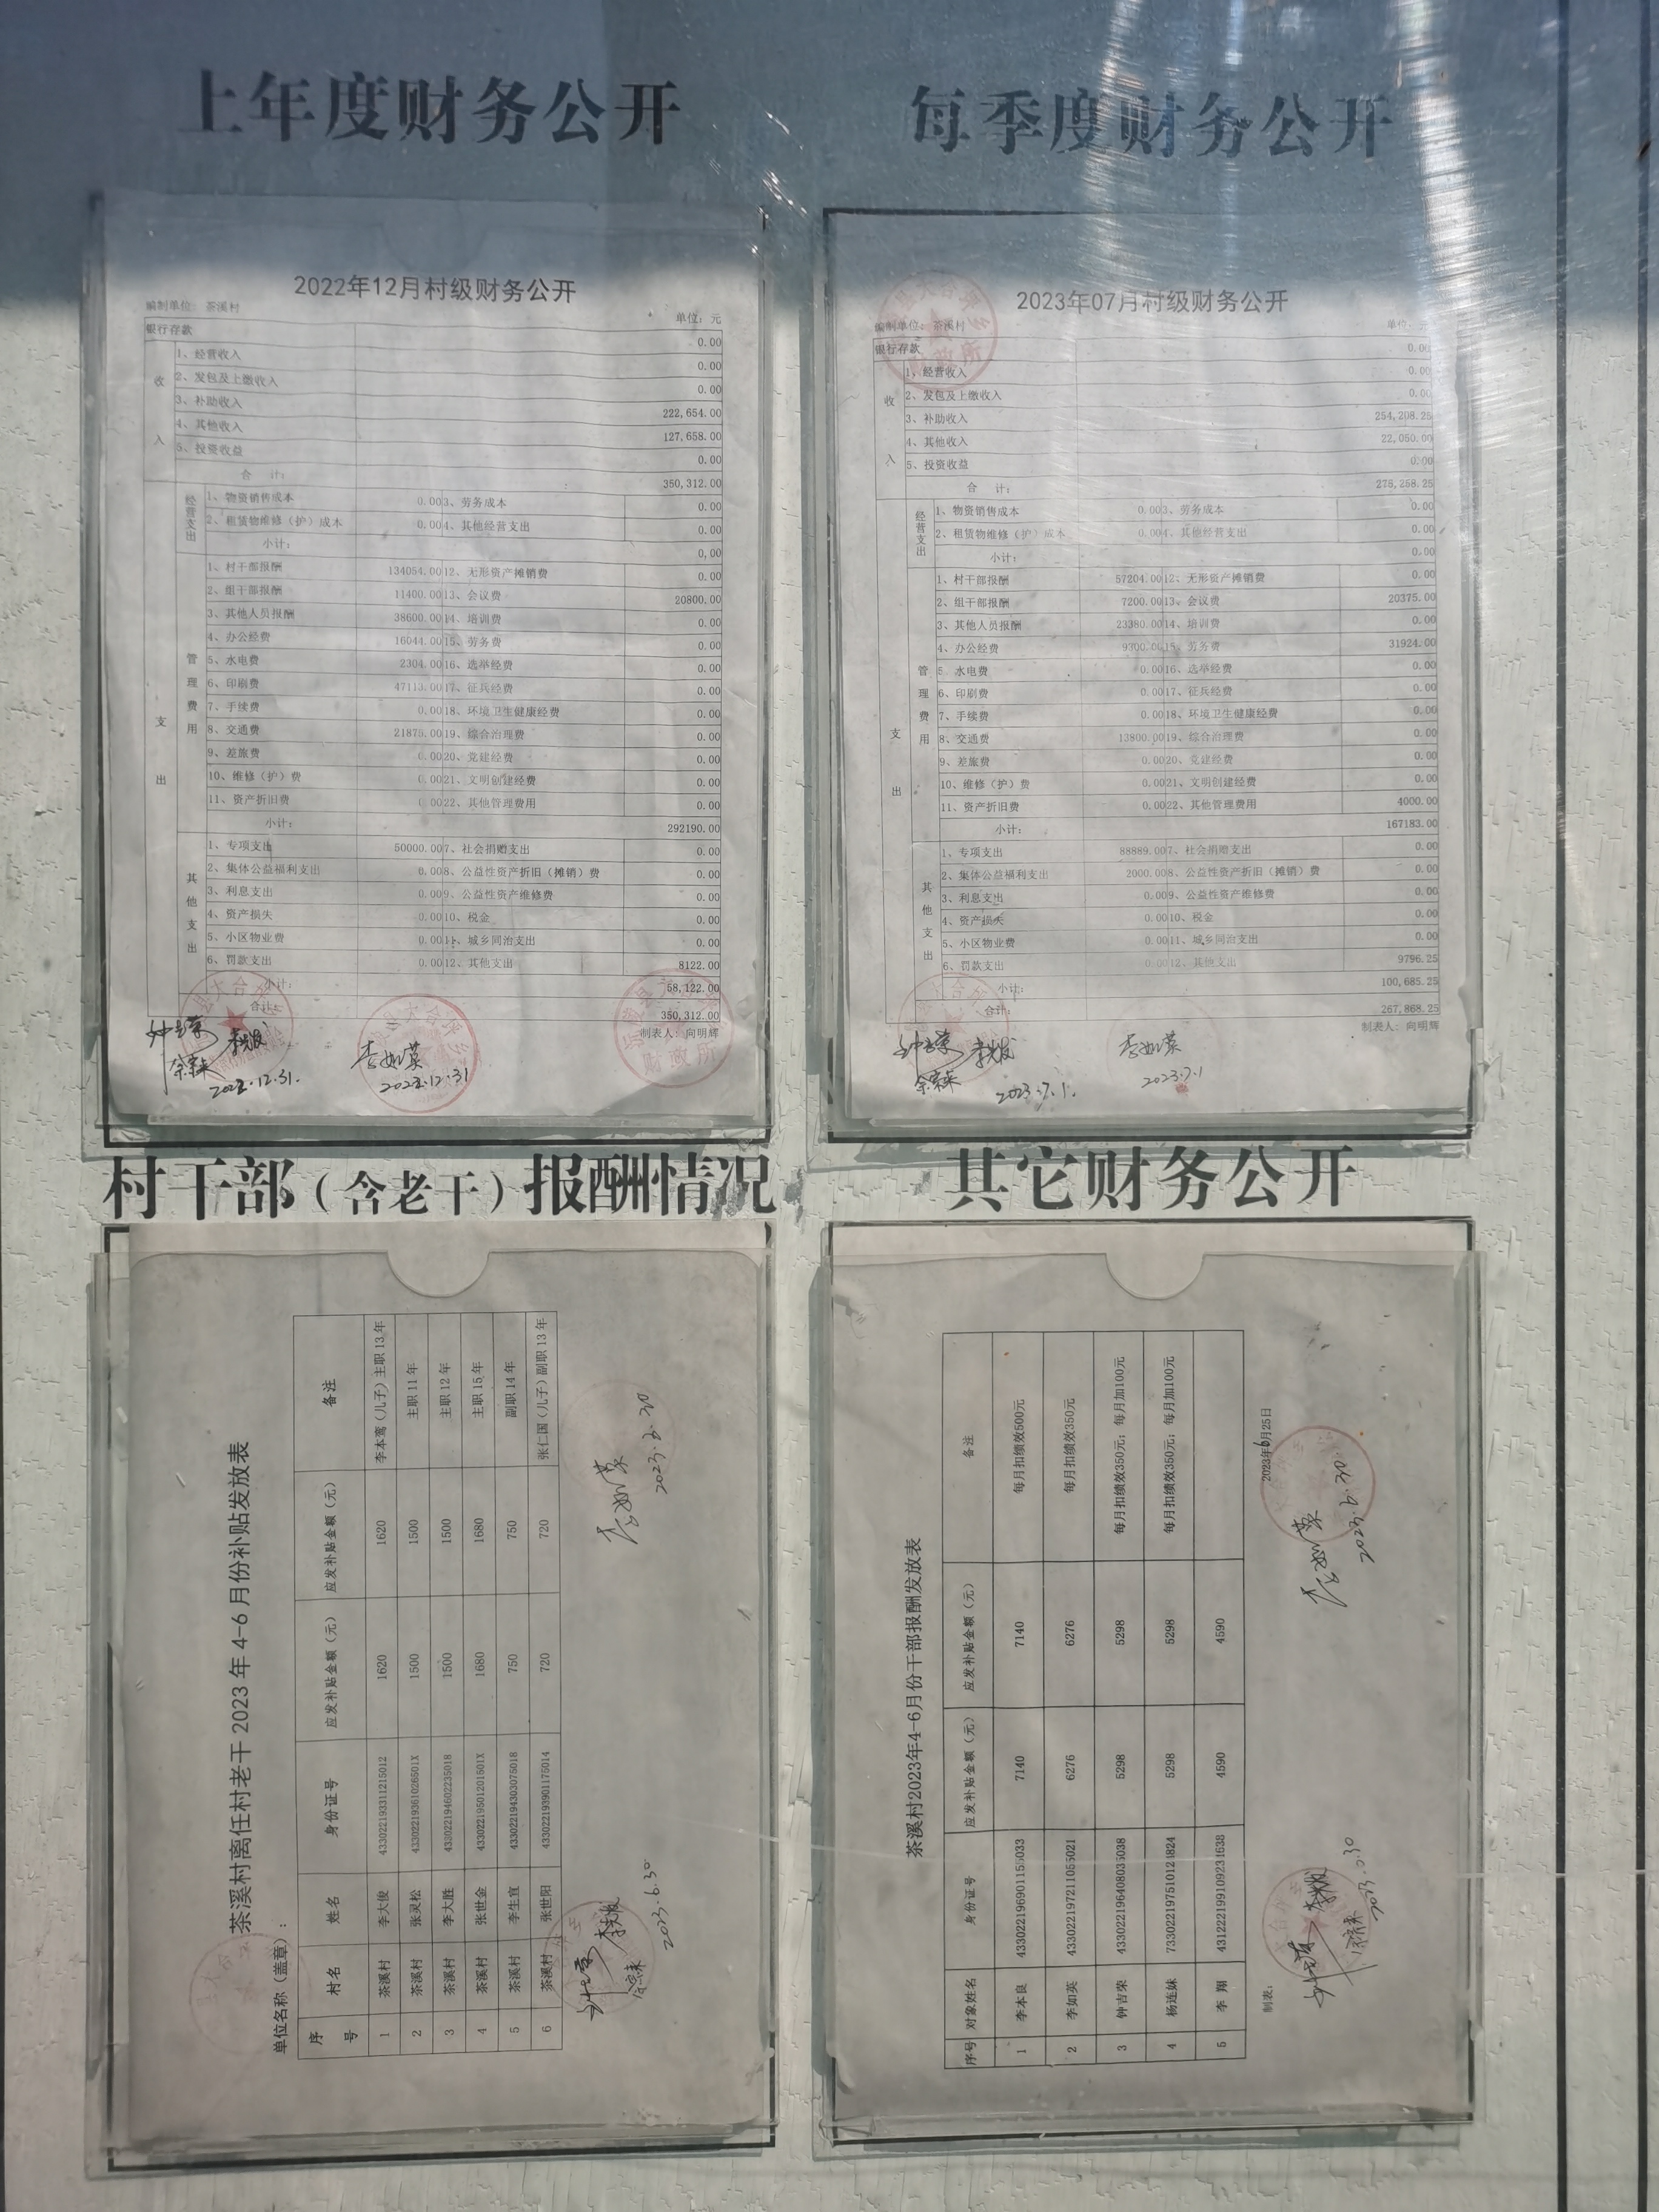 上年度财务公开
每季度财务公开
2022年12月村级财务公开
编制单位: 茶溪村 单位: 元
银行存款 0.00
收入
1、经营收入 0.00
2、发包及上缴收入 0.00
3、补助收入 222,654.00
4、其他收入 127,658.00
5、投资收益 0.00
合 计: 350,312.00
支出
经营支出
1、物资销售成本 0.00 3、劳务成本 0.00
2、租赁物维修（护）成本 0.00 4、其他经营支出 0.00
小计: 0.00
管理费用
1、村干部报酬 134054.00 12、无形资产摊销费 0.00
2、组干部报酬 11400.00 13、会议费 20800.00
3、其他人员报酬 38600.00 14、培训费 0.00
4、办公经费 16044.00 15、劳务费 0.00
5、水电费 2304.00 16、选举经费 0.00
6、印刷费 47113.00 17、征兵经费 0.00
7、手续费 0.00 18、环境卫生健康经费 0.00
8、交通费 21875.00 19、综合治理费 0.00
9、差旅费 0.00 20、党建经费 0.00
10、维修（护）费 0.00 21、文明创建经费 0.00
11、资产折旧费 0.00 22、其他管理费用 0.00
小计: 292190.00
其他支出
1、专项支出 50000.00 7、社会捐赠支出 0.00
2、集体公益福利支出 0.00 8、公益性资产折旧（摊销）费 0.00
3、利息支出 0.00 9、公益性资产维修费 0.00
4、资产损失 0.00 10、税金 0.00
5、小区物业费 0.00 11、城乡同治支出 0.00
6、罚款支出 0.00 12、其他支出 8122.00
小计: 58,122.00
合计: 350,312.00
制表人: 向明辉
李如英
2022.12.31.
2022.12.31
财政所
2023年07月村级财务公开
编制单位: 茶溪村 单位: 元
银行存款 0.00
收入
1、经营收入 0.00
2、发包及上缴收入 0.00
3、补助收入 254,208.25
4、其他收入 22,050.00
5、投资收益 0.00
合 计: 276,258.25
支出
经营支出
1、物资销售成本 0.00 3、劳务成本 0.00
2、租赁物维修（护）成本 0.00 4、其他经营支出 0.00
小计: 0.00
管理费用
1、村干部报酬 57204.00 12、无形资产摊销费 0.00
2、组干部报酬 7200.00 13、会议费 20375.00
3、其他人员报酬 23380.00 14、培训费 0.00
4、办公经费 9300.00 15、劳务费 31924.00
5、水电费 0.00 16、选举经费 0.00
6、印刷费 0.00 17、征兵经费 0.00
7、手续费 0.00 18、环境卫生健康经费 0.00
8、交通费 13800.00 19、综合治理费 0.00
9、差旅费 0.00 20、党建经费 0.00
10、维修（护）费 0.00 21、文明创建经费 0.00
11、资产折旧费 0.00 22、其他管理费用 4000.00
小计: 167183.00
其他支出
1、专项支出 88889.00 7、社会捐赠支出 0.00
2、集体公益福利支出 2000.00 8、公益性资产折旧（摊销）费 0.00
3、利息支出 0.00 9、公益性资产维修费 0.00
4、资产损失 0.00 10、税金 0.00
5、小区物业费 0.00 11、城乡同治支出 0.00
6、罚款支出 0.00 12、其他支出 9796.25
小计: 100,685.25
合计: 267,868.25
制表人: 向明辉
李如英
2023.7.1.
2023.7.1
村干部（含老干）报酬情况
其它财务公开
茶溪村离任村老干 2023 年 4-6 月份补贴发放表
单位名称（盖章）:
序号 村名 姓名 身份证号 应发补贴金额（元） 应发补贴金额（元） 备注
1 茶溪村 李大俊 433022193311215012 1620 1620 李本鸾（儿子）主职 13 年
2 茶溪村 张灵松 43302219361026501X 1500 1500 主职 11 年
3 茶溪村 李大胜 433022194602235018 1500 1500 主职 12 年
4 茶溪村 张世金 43302219501201501X 1680 1680 主职 15 年
5 茶溪村 李生宜 433022194303075018 750 750 副职 14 年
6 茶溪村 张世阳 433022193901175014 720 720 张仁国（儿子）副职 13 年
2023.6.30
茶溪村2023年4-6月份干部报酬发放表
序号 对象姓名 身份证号 应发补贴金额（元） 应发补贴金额（元） 备注
1 李本良 433022196901155033 7140 7140 每月扣绩效500元
2 李如英 433022197211055021 6276 6276 每月扣绩效350元
3 钟吉荣 433022196408035038 5298 5298 每月扣绩效350元; 每月加100元
4 杨连妹 5298 5298 每月扣绩效350元; 每月加100元
5 李 翔 431222199109231638 4590 4590
制表: 2023年6月25日
李如英
2023.6.30